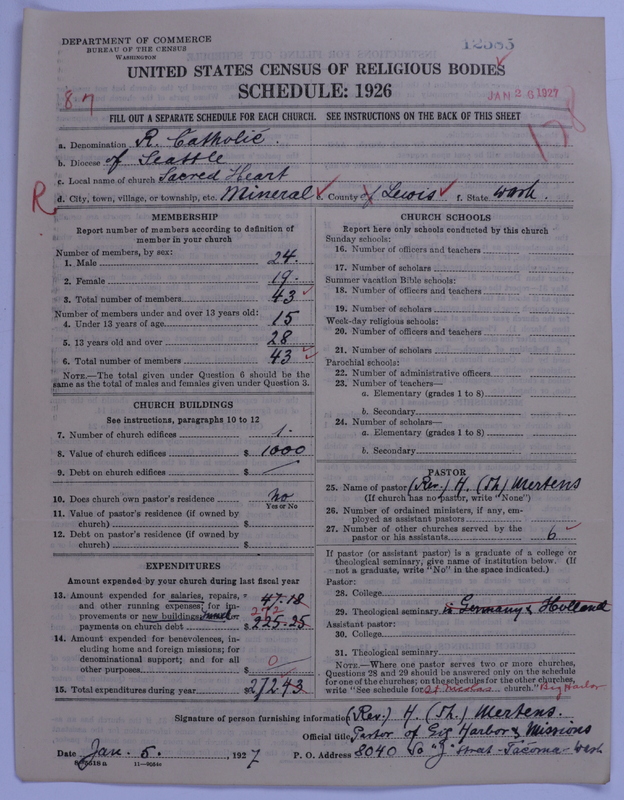 DEPARTMENT OF COMMERCE
BUREAU OF THE CENSUS
WASHINGTON
12385
UNITED STATES CENSUS OF RELIGIOUS BODIES
SCHEDULE: 1926
87
JAN 26 1927
178
FILL OUT A SEPARATE SCHEDULE FOR EACH CHURCH. SEE INSTRUCTIONS ON THE BACK OF THIS SHEET
a. Denomination R. Catholic.
b. Diocese of Seattle
c. Local name of church Sacred Heart
R d. City, town, village, or township, etc. Mineral e. County of Lewis f. State Wash.
MEMBERSHIP
Report number of members according to definition of
member in your church
Number of members, by sex:
1. Male 24.
2. Female 19.
3. Total number of members 43
Number of members under and over 13 years old:
4. Under 13 years of age 15
5. 13 years old and over 28
6. Total number of members 43
NOTE.—The total given under Question 6 should be the
same as the total of males and females given under Question 3.
CHURCH BUILDINGS
See instructions, paragraphs 10 to 12
7. Number of church edifices 1.
8. Value of church edifices $ 1000
9. Debt on church edifices $ —
10. Does church own pastor's residence No
Yes or No
11. Value of pastor's residence (if owned by
church) $
12. Debt on pastor's residence (if owned by
church) $
EXPENDITURES
Amount expended by your church during last fiscal year
13. Amount expended for salaries, repairs,
and other running expenses; for im-
provements or new buildings;
payments on church debt $
47.18
272
225.25
14. Amount expended for benevolences, in-
cluding home and foreign missions; for
denominational support; and for all
other purposes $ 0
15. Total expenditures during year $ 272.43
CHURCH SCHOOLS
Report here only schools conducted by this church
Sunday schools:
16. Number of officers and teachers
17. Number of scholars
Summer vacation Bible schools:
18. Number of officers and teachers
19. Number of scholars
Week-day religious schools:
20. Number of officers and teachers
21. Number of scholars
Parochial schools:
22. Number of administrative officers
23. Number of teachers—
a. Elementary (grades 1 to 8)
b. Secondary
24. Number of scholars—
a. Elementary (grades 1 to 8)
b. Secondary
PASTOR
25. Name of pastor (Rev.) H. (Th.) Mertens
(If church has no pastor, write "None")
26. Number of ordained ministers, if any, em-
ployed as assistant pastors
27. Number of other churches served by the
pastor or his assistants 6
If pastor (or assistant pastor) is a graduate of a college or
theological seminary, give name of institution below. (If
not a graduate, write "No" in the space indicated.)
Pastor:
28. College
29. Theological seminary in Germany & Holland
Assistant pastor:
30. College
31. Theological seminary
NOTE.—Where one pastor serves two or more churches,
Questions 28 and 29 should be answered only on the schedule
for one of the churches; on the schedules for the other churches,
write "See schedule for St Nicolas church." Gig Harbor
Signature of person furnishing information (Rev.) H. (Th.) Mertens.
Official title Pastor of Gig Harbor & Missions
Date Jan. 5. 1927 P. O. Address 8040 So "J" Street - Tacoma - Wash
11—9084c